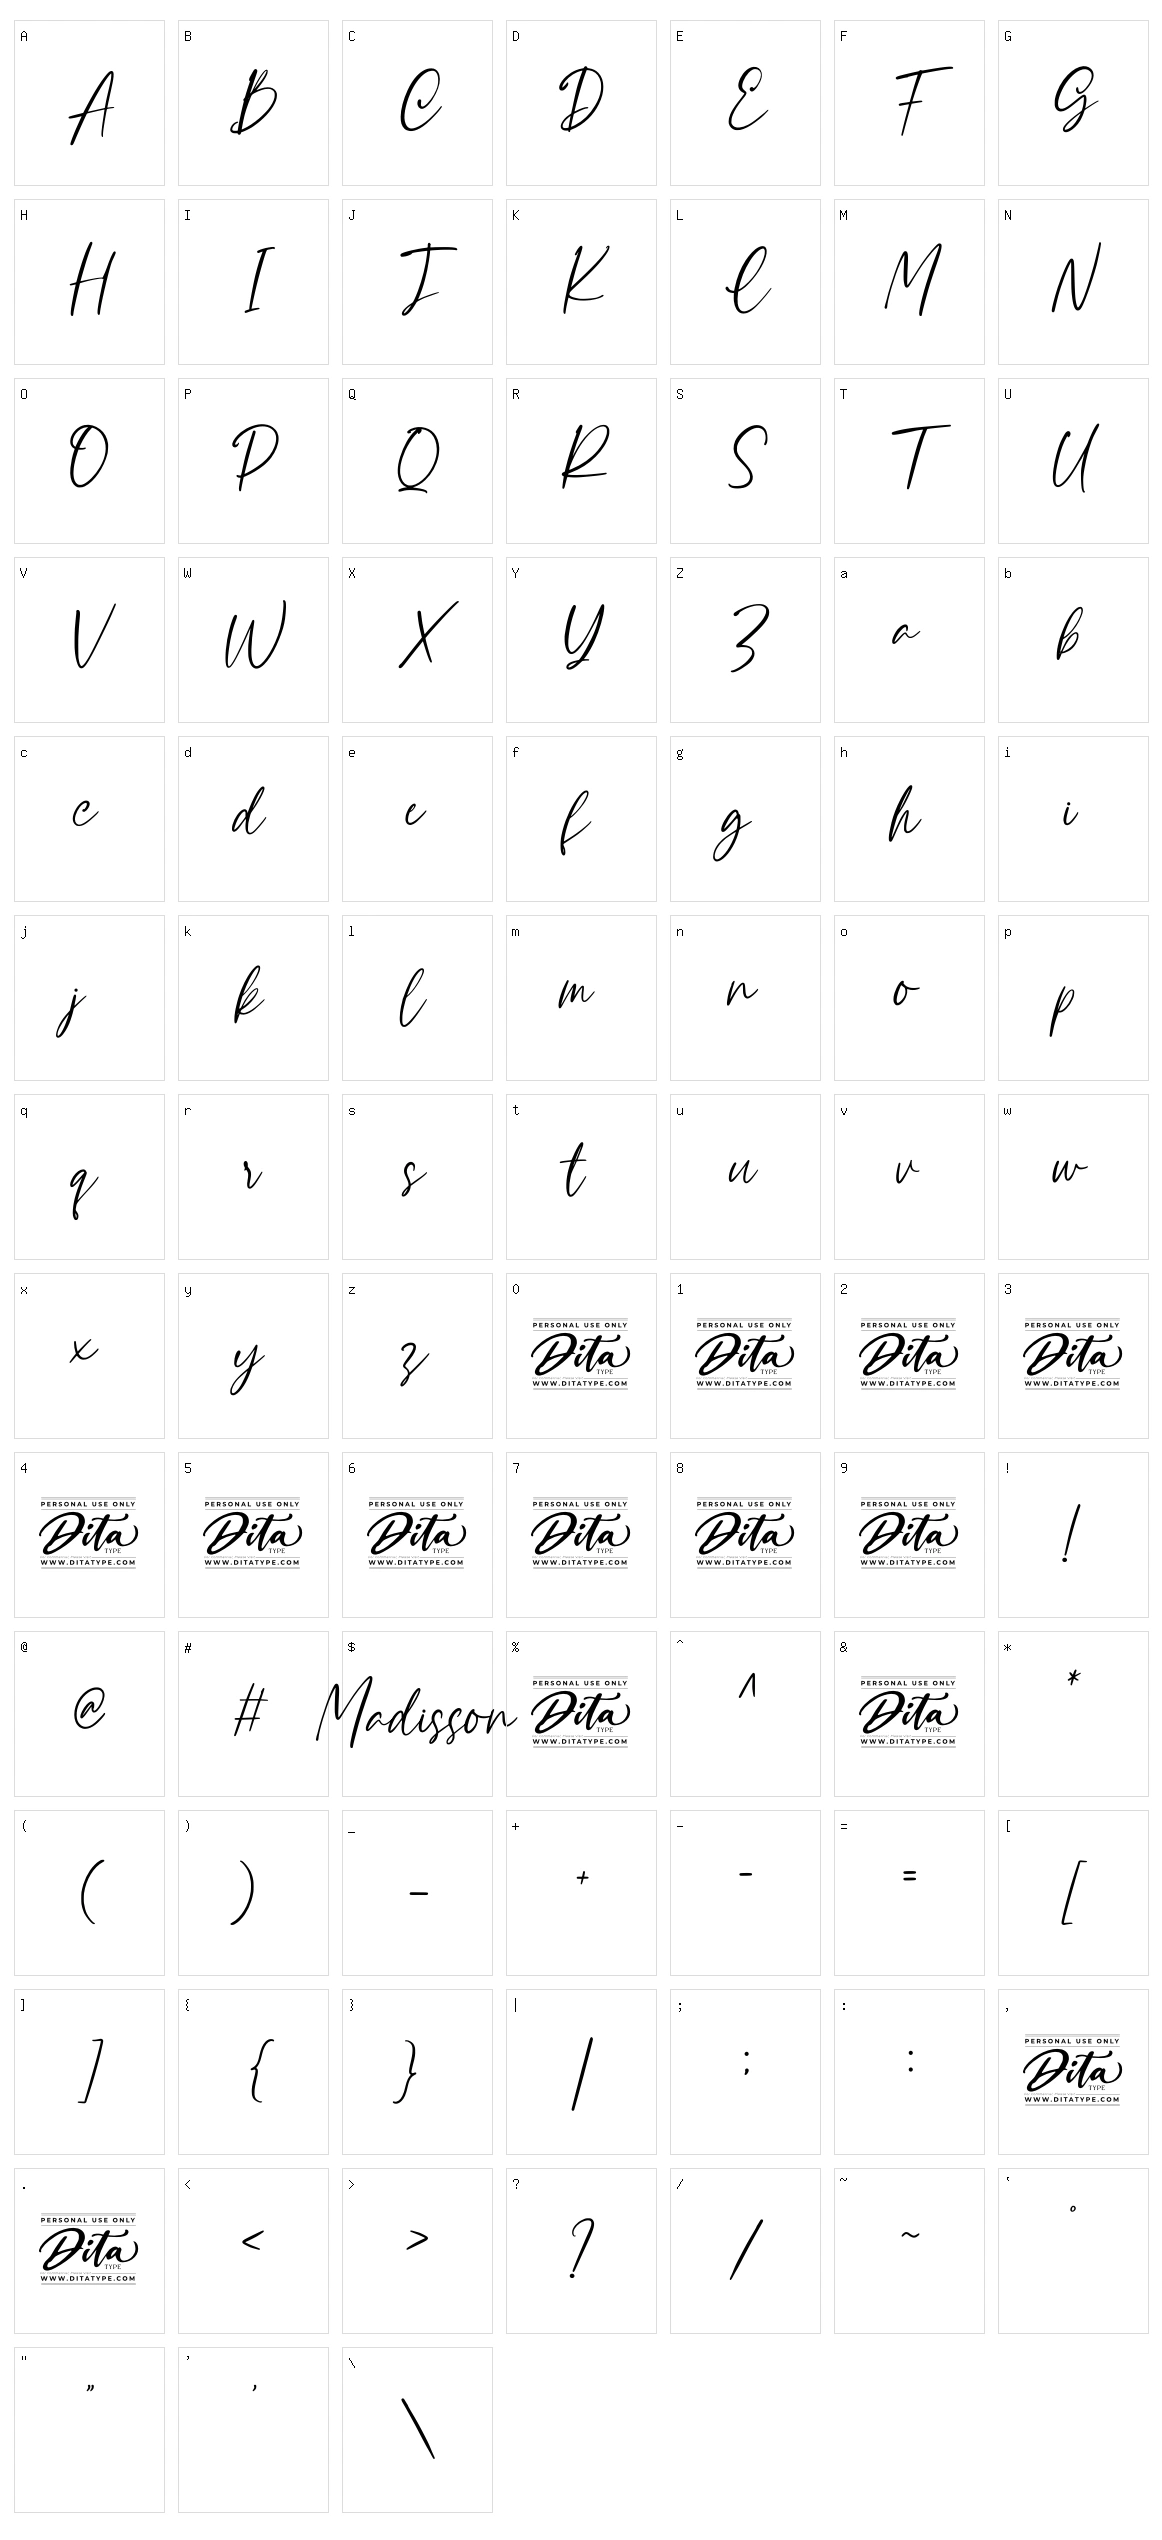 A B C D E F G
A B C D E F G
H I J K L M N
H I J K L M N
O P Q R S T U
O P Q R S T U
V W X Y Z a b
V W X Y Z a b
c d e f g h i
c d e f g h i
j k l m n o p
j k l m n o p
q r s t u v w
q r s t u v w
x y z 0 1 2 3
x y z
PERSONAL USE ONLY PERSONAL USE ONLY PERSONAL USE ONLY PERSONAL USE ONLY
Dita Dita Dita Dita
TYPE TYPE TYPE TYPE
WWW.DITATYPE.COM WWW.DITATYPE.COM WWW.DITATYPE.COM WWW.DITATYPE.COM
4 5 6 7 8 9 !
PERSONAL USE ONLY PERSONAL USE ONLY PERSONAL USE ONLY PERSONAL USE ONLY PERSONAL USE ONLY PERSONAL USE ONLY
Dita Dita Dita Dita Dita Dita !
TYPE TYPE TYPE TYPE TYPE TYPE
WWW.DITATYPE.COM WWW.DITATYPE.COM WWW.DITATYPE.COM WWW.DITATYPE.COM WWW.DITATYPE.COM WWW.DITATYPE.COM
@ # $ % ^ & *
PERSONAL USE ONLY PERSONAL USE ONLY
@ # Madisson Dita ^ Dita *
TYPE TYPE
WWW.DITATYPE.COM WWW.DITATYPE.COM
( ) _ + - = [
( ) _ + - = [
] { } | ; : ,
PERSONAL USE ONLY
] { } | ; : Dita
TYPE
WWW.DITATYPE.COM
. < > ? / ~ ‛
PERSONAL USE ONLY
Dita < > ? / ~ °
TYPE
WWW.DITATYPE.COM
" ’ \
” ’ \